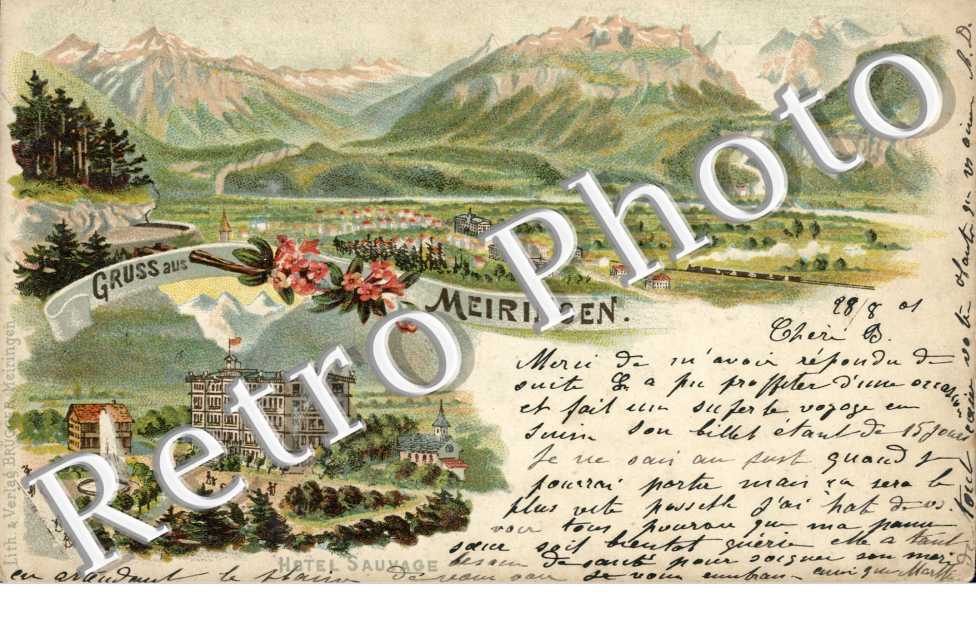 GRUSS AUS
MEIRINGEN.
Lith. & Verlag BRÜGGER Meiringen
HOTEL SAUVAGE
Retro Photo
28/8 01
Chère B.
Merci de m'avoir répondu de
suite L a pu proffiter d'une occasion
et fait un superbe voyage en
Suisse son billet étant de 15 jours
Je ne sais au just quand je
pourrai partir mais ça sera le
plus vite possible j'ai hat de vs
voir tous pourvu que ma pauvre
sœur soit bientot guérie elle a tant
besoin de santé pour soigner son mari
en attendant le plaisir de vous voir je vous embrasse